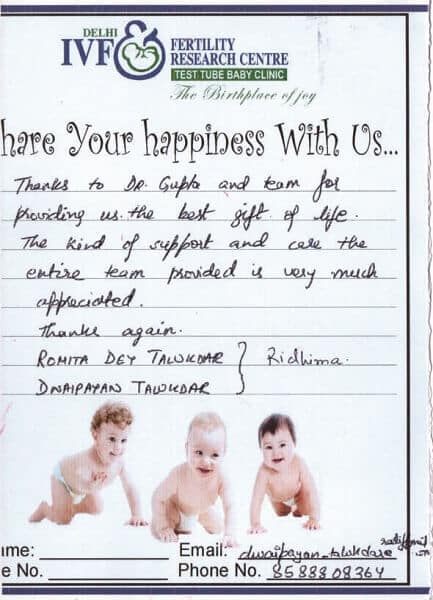 DELHI
IVF & FERTILITY
RESEARCH CENTRE
TEST TUBE BABY CLINIC
The Birthplace of joy
hare Your happiness With Us...
Thanks to Dr. Gupta and team for
providing us the best gift of life.
The kind of support and care the
entire team provided is very much
appreciated.
Thanks again.
ROMITA DEY TALUKDAR } Ridhima.
DWAIPAYAN TALUKDAR
ame: Email: dwaipayan_talukdar
e No. Phone No. 8588808364